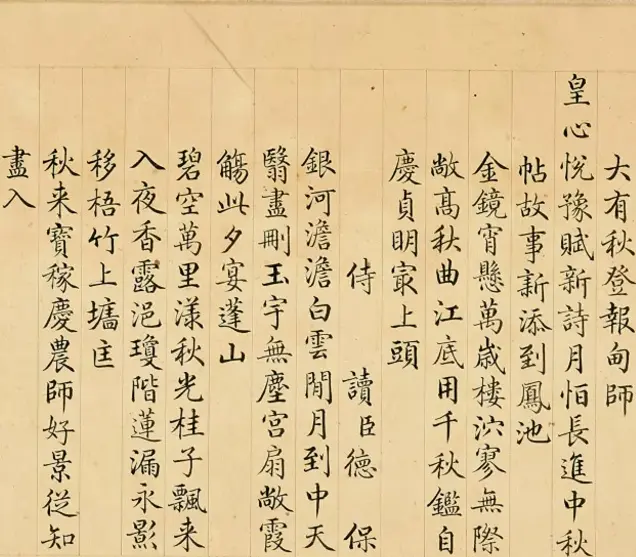 大有秋登報甸師
皇心悦豫賦新詩月怕長進中秋
帖故事新添到鳳池
金鏡宵懸萬歲樓泬寥無際
敞高秋曲江底用千秋鑑自
慶貞明冣上頭
侍讀臣德保
銀河澹澹白雲間月到中天
翳盡刪玉宇無塵宫扇敞霞
觴此夕宴蓬山
碧空萬里漾秋光桂子飄来
入夜香露浥瓊階蓮漏永影
移梧竹上墻匡
秋来寶稼慶農師好景從知
盡入